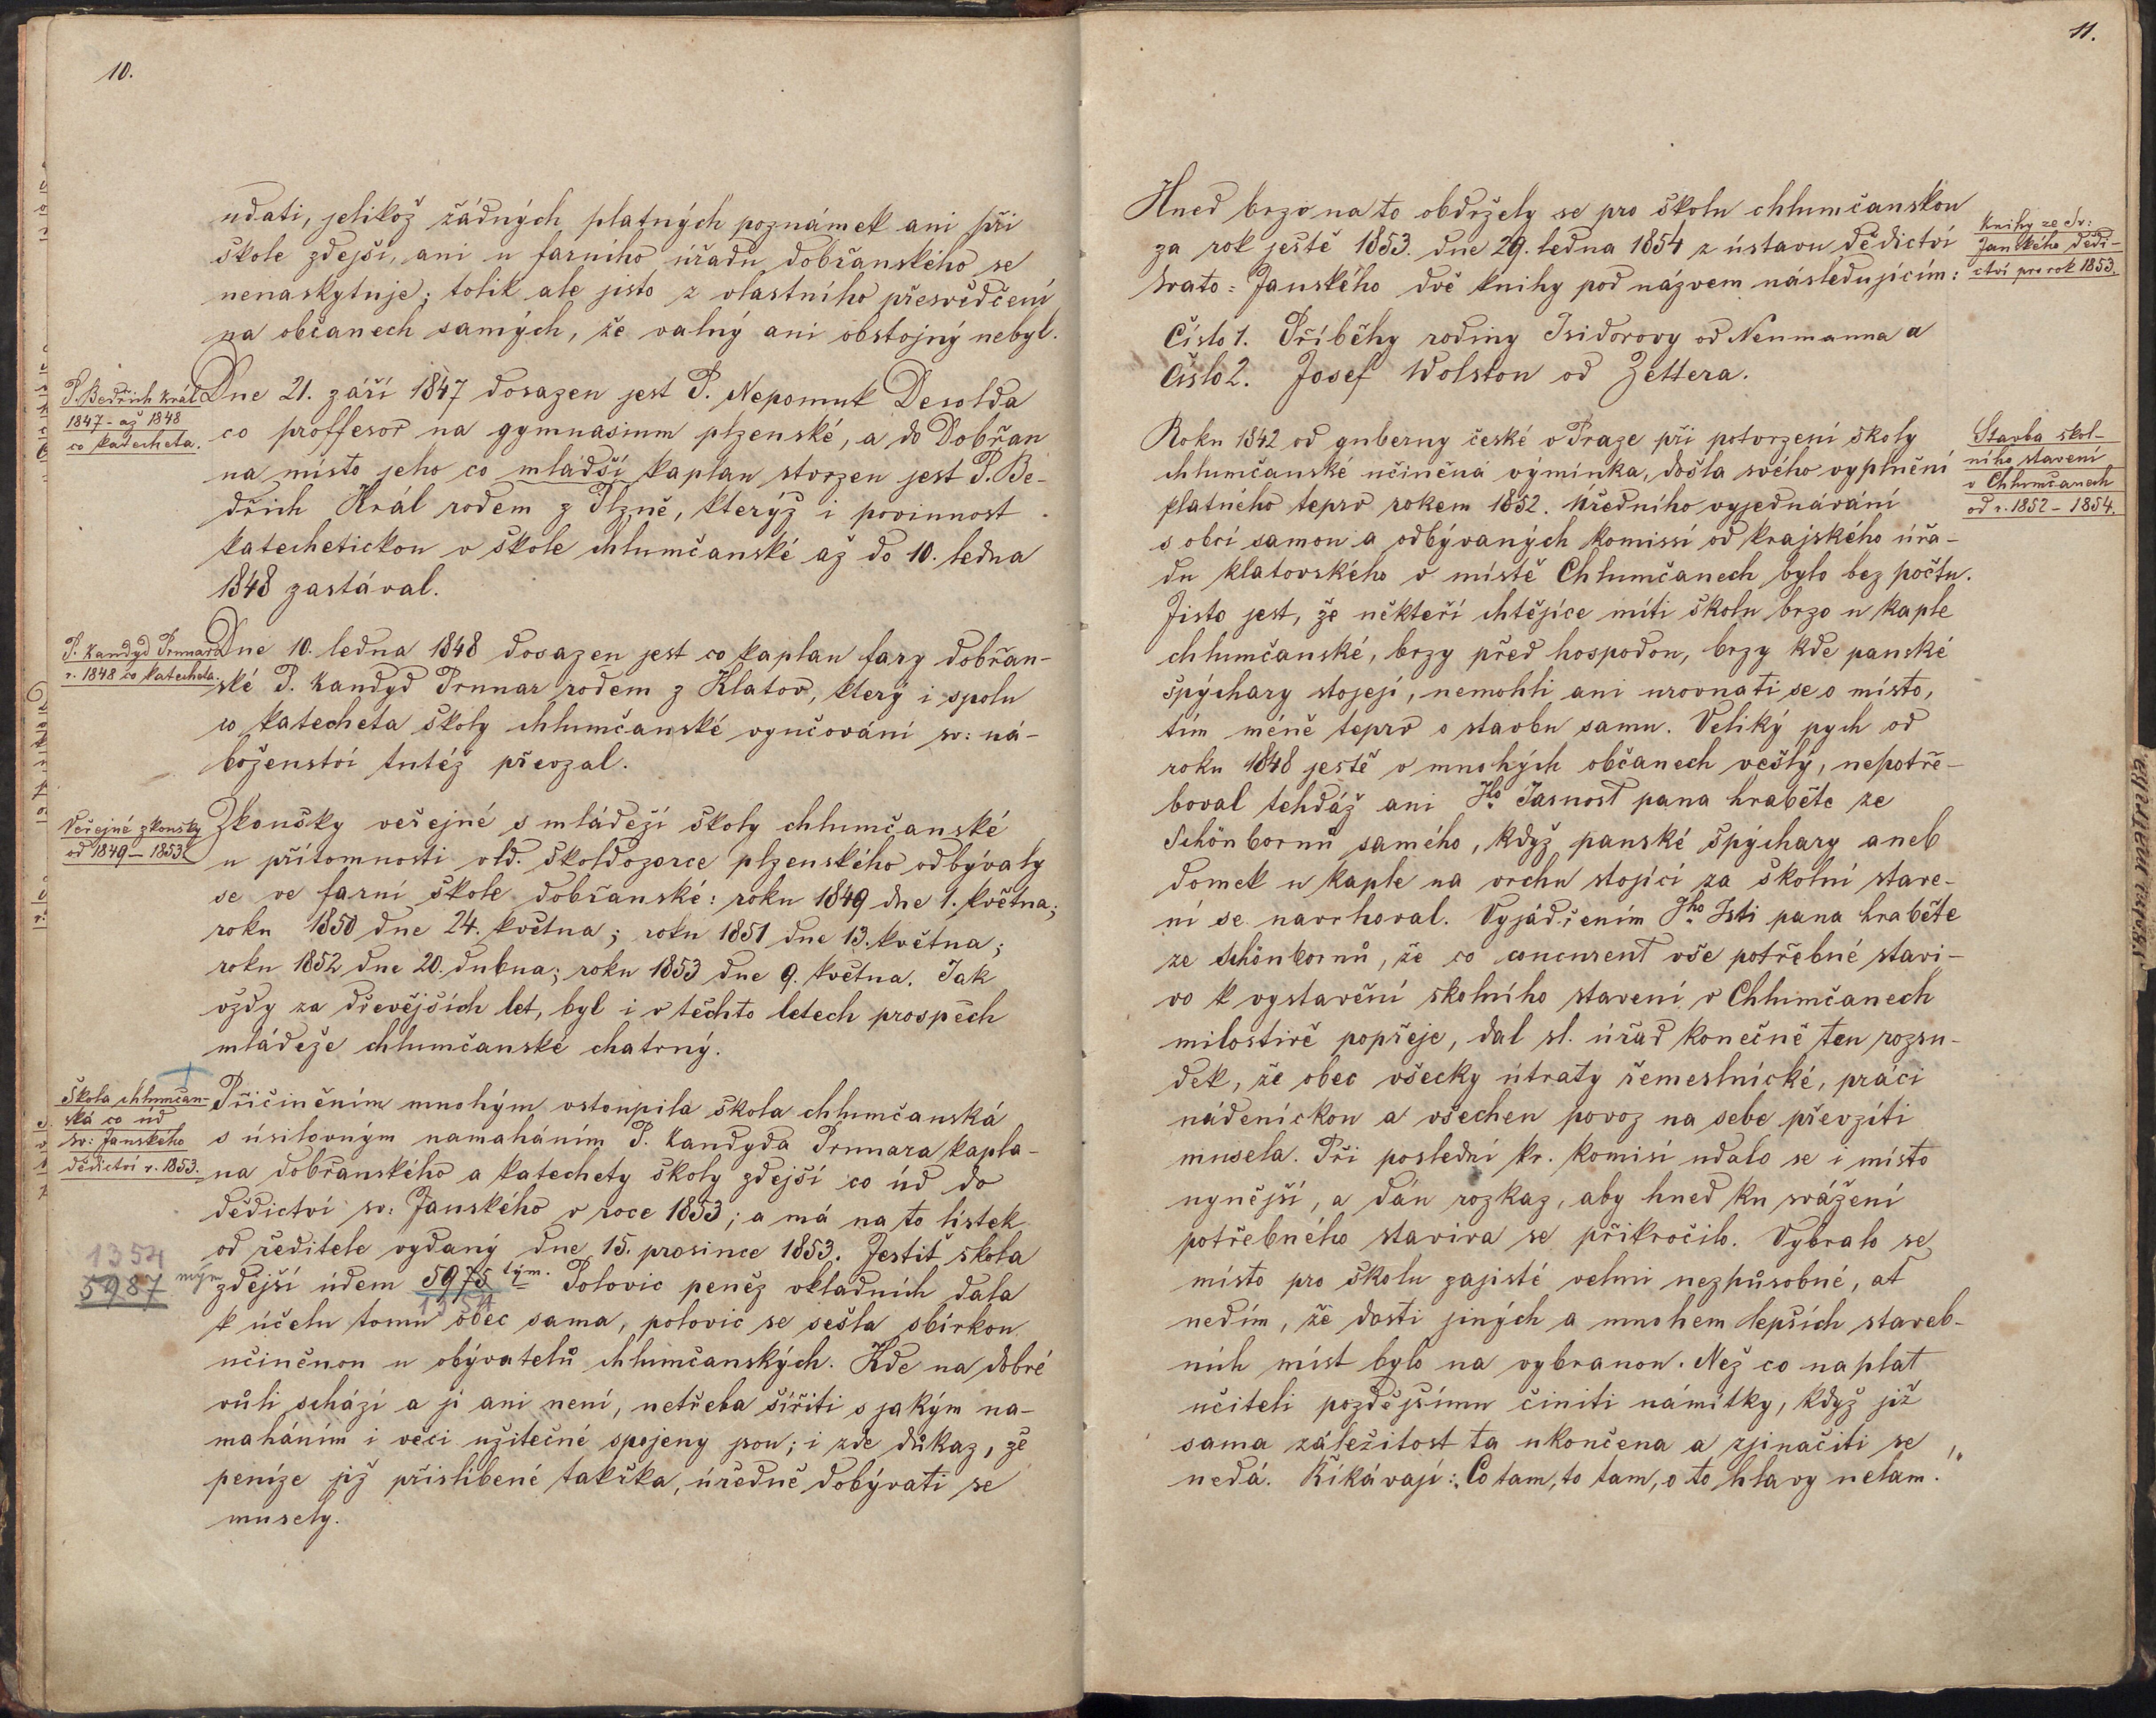 10.
udati, jelikož žádných platných poznámek ani při
škole zdejší, ani u farního úřadu dobřanského se
nenaskytuje; tolik ale jisto z vlastního přesvědčení
na občanech samých, že valný ani obstojný nebyl.
P. Bedřich Král
1847 - až 1848
co katecheta.
Dne 21. září 1847 dosazen jest P. Nepomuk Desolda
co proffesor na gymnasium plzenské, a do Dobřan
na místo jeho co mladší kaplan stvrzen jest P. Be-
dřich Král rodem z Plzně, kterýž i povinnost
katechetickou v škole chlumčanské až do 10. ledna
1848 zastával.
P. Kandyd Prunar
r. 1848 co katecheta.
Dne 10. ledna 1848 dosazen jest co kaplan fary dobřan-
ské P. Kandyd Prunar rodem z Klatov, který i spolu
co katecheta školy chlumčanské vyučování sv: ná-
boženství tutéž převzal.
Veřejné zkoušky
od 1849 - 1853.
Zkoušky veřejné s mládeží školy chlumčanské
u přítomnosti vld. školdozorce plzenského odbývaly
se ve farní škole dobřanské: roku 1849 dne 1. května;
roku 1850 dne 24. května; roku 1851 dne 13. května;
roku 1852 dne 20. dubna; roku 1853 dne 9. května. Jak
vždy za dřevějších let, byl i v těchto letech prospěch
mládeže chlumčanské chatrný.
Škola chlumčan-
ská co úd
sv: Janského
dědictví r. 1853.
Přičiněním mnohým vstoupila škola chlumčanská
s úsilovným namaháním P. Kandyda Prunara kapla-
na dobřanského a katechety školy zdejší co úd do
dědictví sv: Janského v roce 1853; a má na to lístek
od ředitele vydaný dne 15. prosince 1853. Jestiť škola
1354
5987 nýn
zdější údem 5975 tým. Polovic peněz vkladních dala
1354
k účelu tomu obec sama, polovic se sešla sbírkou
učiněnou u obývatelů chlumčanských. Kde na dobré
vůli schází a jí ani není, netřeba šířiti s jakým na-
maháním i věci užitečné spojeny jsou; i zde důkaz, že
peníze již přislíbené takřka, úředně dobývati se
musely.
11.
Hned brzo na to obdržely se pro školu chlumčanskou
za rok ještě 1853. dne 29. ledna 1854 z ústavu dědictví
Svato=Janského dvě knihy pod názvem následujícím:
Knihy ze Sv:
Janského dědi-
ctví pro rok 1853.
Číslo 1. Příběhy rodiny Isidorovy od Neumanna a
Číslo 2. Josef Wolston od Zettera.
Roku 1842 od guberny české v Praze při potvrzení školy
chlumčanské učiněná výmínka, došla svého vyplnění
platného teprv rokem 1852. Úředního vyjednávání
s obcí samou a odbývaných komissí od krajského úřa-
du klatovského v místě Chlumčanech bylo bez počtu.
Stavba škol-
ního stavení
v Chlumčanech
od r. 1852 - 1854.
Jisto jest, že někteří chtějíce míti školu brzo u kaple
chlumčanské, brzy před hospodou, brzy kde panské
špýchary stojejí, nemohli ani urovnati se o místo,
tím méně teprv o stavbu samu. Veliký pych od
roku 1848 ještě v mnohých občanech vešlý, nepotře-
boval tehdáž ani Jho Jasnost pana hraběte ze
Schönbornů samého, když panské špýchary aneb
domek u kaple na vrchu stojící za školní stave-
ní se navrhoval. Vyjádřením Jho Jsti pana hraběte
ze Schönbornů, že co concurent vše potřebné stavi-
vo k vystavění školního stavení v Chlumčanech
milostivě popřeje, dal sl. úřad konečně ten rozsu-
dek, že obec všecky útraty řemeslnické, práci
nádenickou a všechen povoz na sebe převzíti
musela. Při poslední kr. komisi udalo se i místo
nynější, a dán rozkaz, aby hned ku svážení
potřebného staviva se přikročilo. Vybralo se
místo pro školu zajisté velmi nezpůsobné, ať
nedím, že dosti jiných a mnohem lepších staveb-
ních míst bylo na vybranou. Než co naplat
učiteli pozdějšímu činiti námitky, když již
sama záležitost ta ukončena a zjinačiti se
nedá. Říkávají: „Co tam, to tam, o to hlavy nelam."